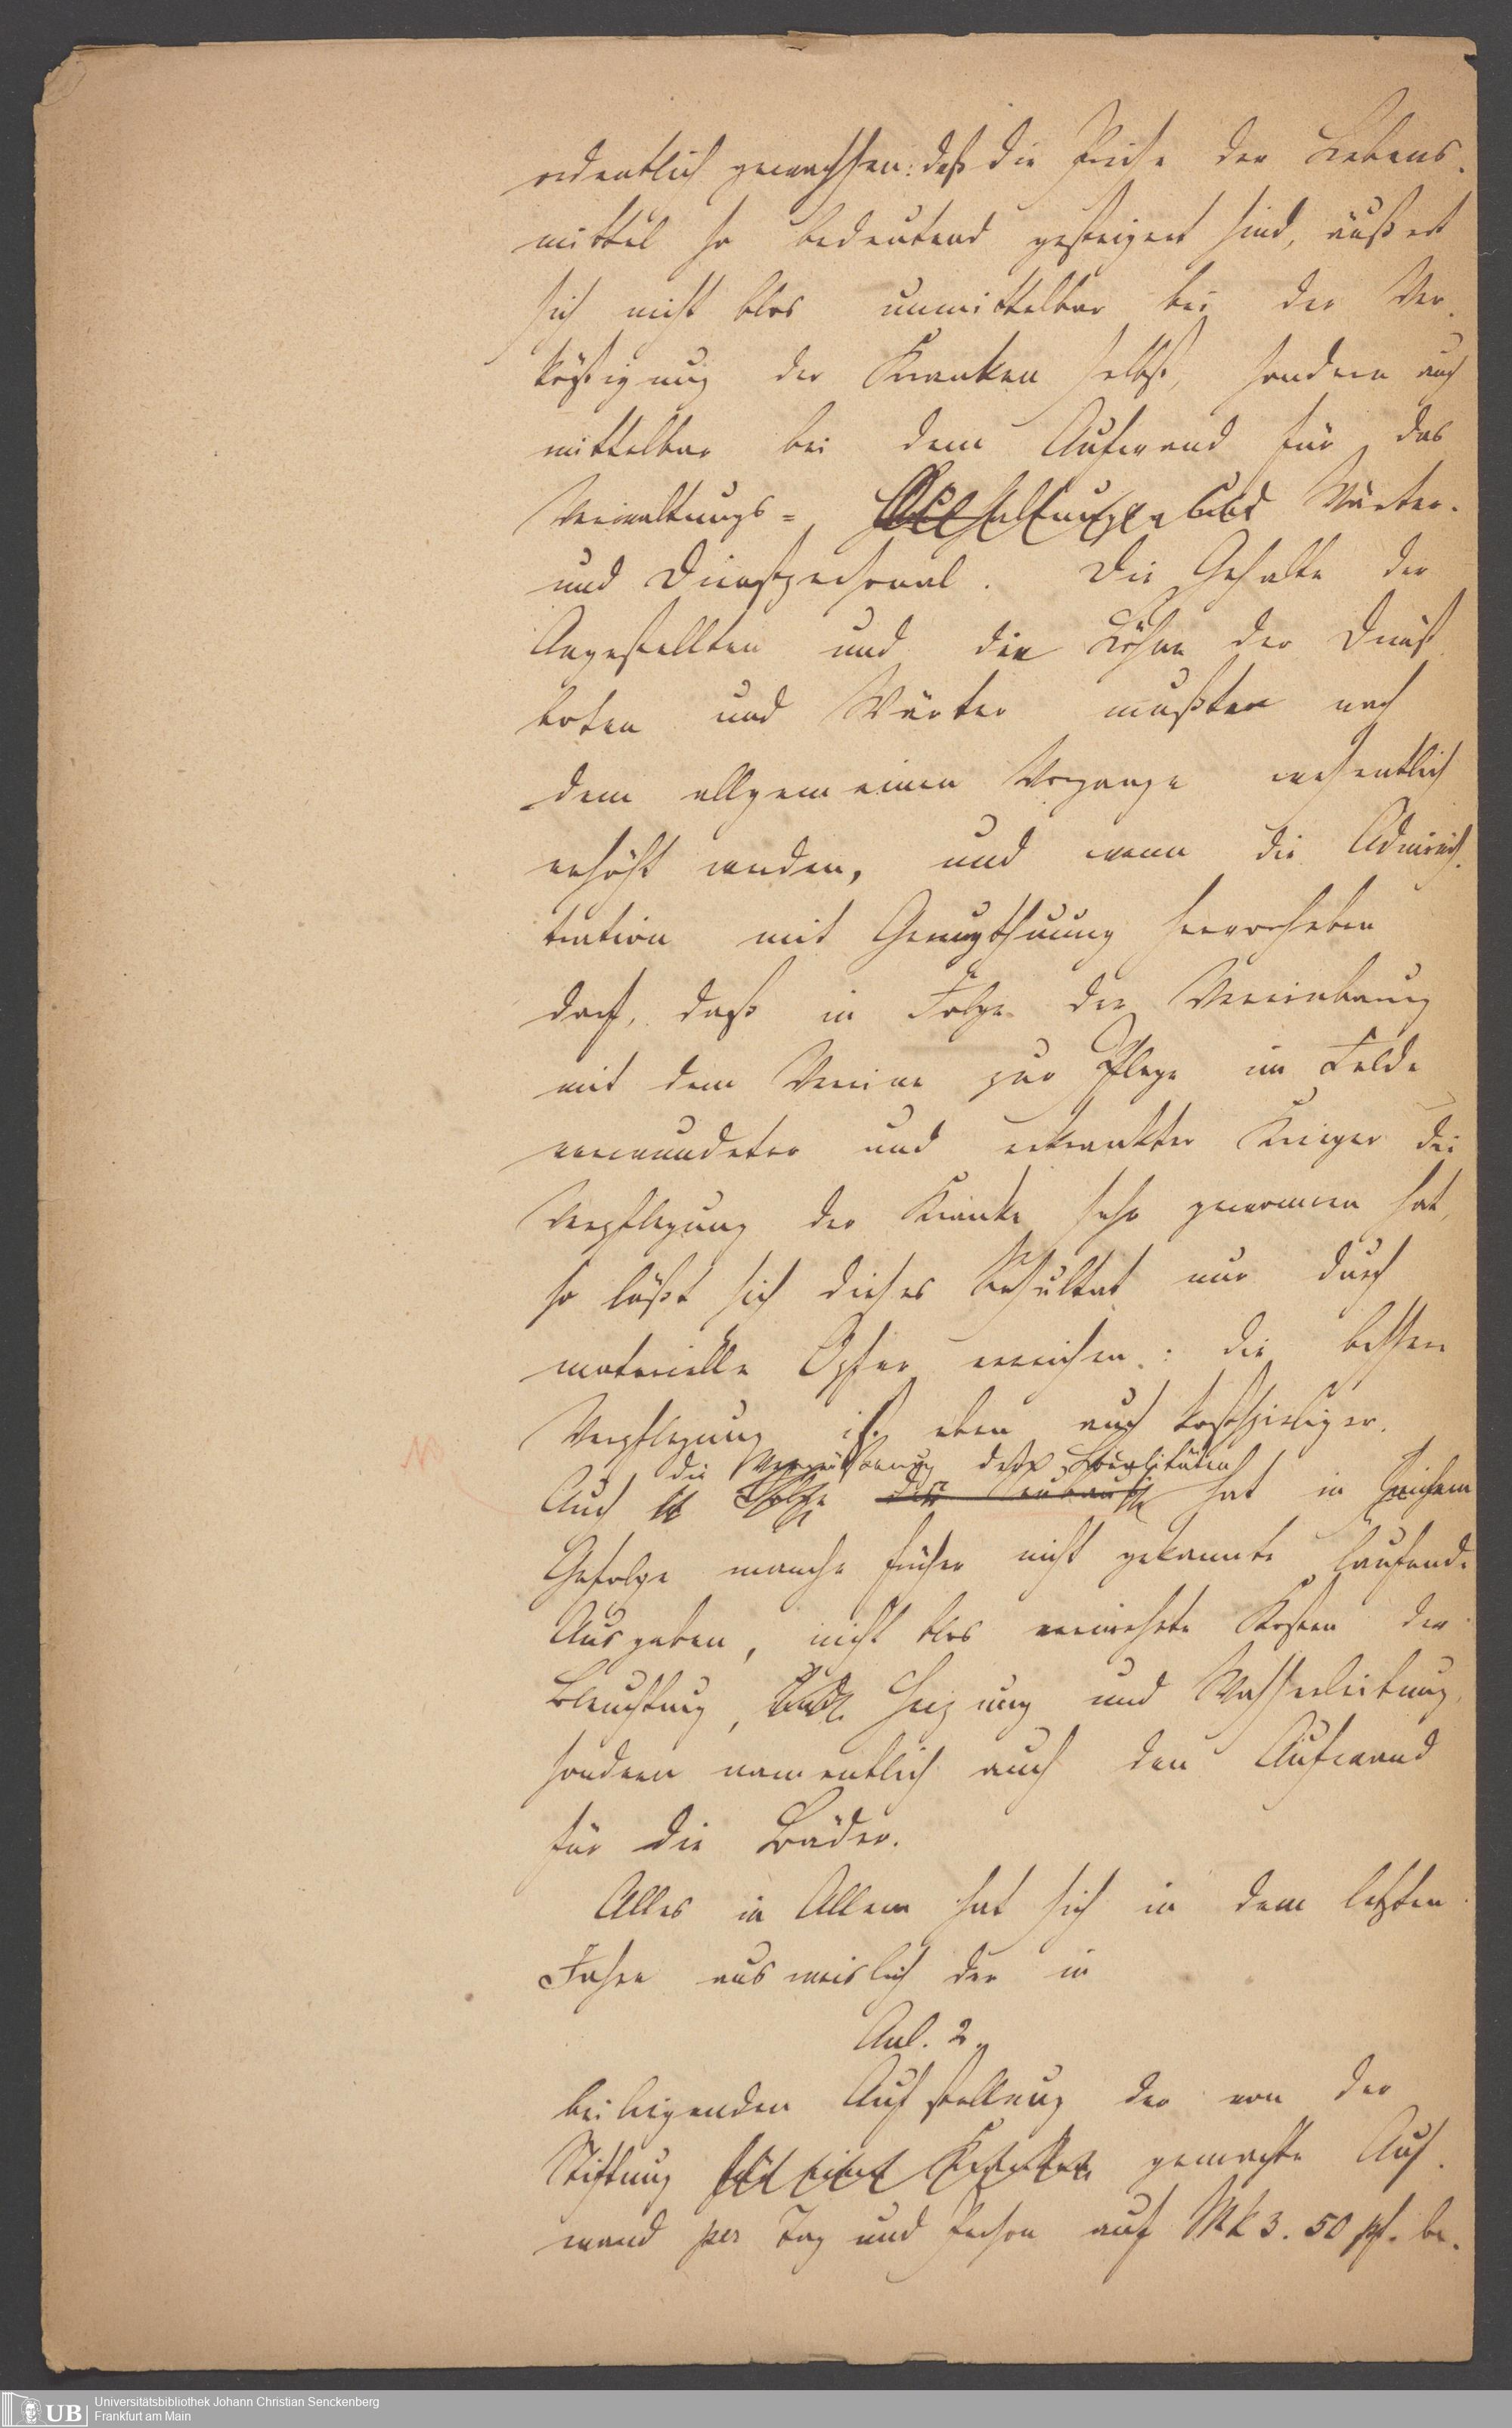 ordentlich gewachsen: daß die Preise der Lebens-
mittel so bedeutend gesteigert sind, äußert
sich nicht blos unmittelbar bei der Ver-
köstigung der Kranken selbst, sondern auch
mittelbar bei dem Aufwand für das
Verwaltungs= und Wärter-
und Dienstpersonal. Die Gehalte der
Angestellten und die Löhne der Dienst-
boten und Wärter mußten nach
dem allgemeinen Vorgange wesentlich
erhöht werden, und wenn die Adminis-
tration mit Genugthuung hervorheben
darf, daß in Folge der Vereinbarung
mit dem Vereine zur Pflege im Felde
verwundeter und erkrankter Krieger die
Verpflegung der Kranke sehr gewonnen hat,
so läßt sich dieses Resultat nur durch
materielle Opfer erreichen: die bessere
Verpflegung ist eben auch kostspieliger.
die Vergrößerung der Localitäten
Auch der Neubaus hat in seinem
Gefolge manche früher nicht gekannte laufende
Ausgaben, nicht blos vermehrte Kosten der
Beleuchtung, und Heizung und Wasserleitung,
sondern namentlich auch den Aufwand
für die Bäder.
Alles in Allem hat sich in dem letzten
Jahre ausweislich der in
Anl. 2
beiliegenden Aufstellung der von der
Stiftung für einen Kranken gemachte Auf-
wand per Tag und Person auf Mk 3. 50 pf. be-
Universitätsbibliothek Johann Christian Senckenberg
Frankfurt am Main
UB